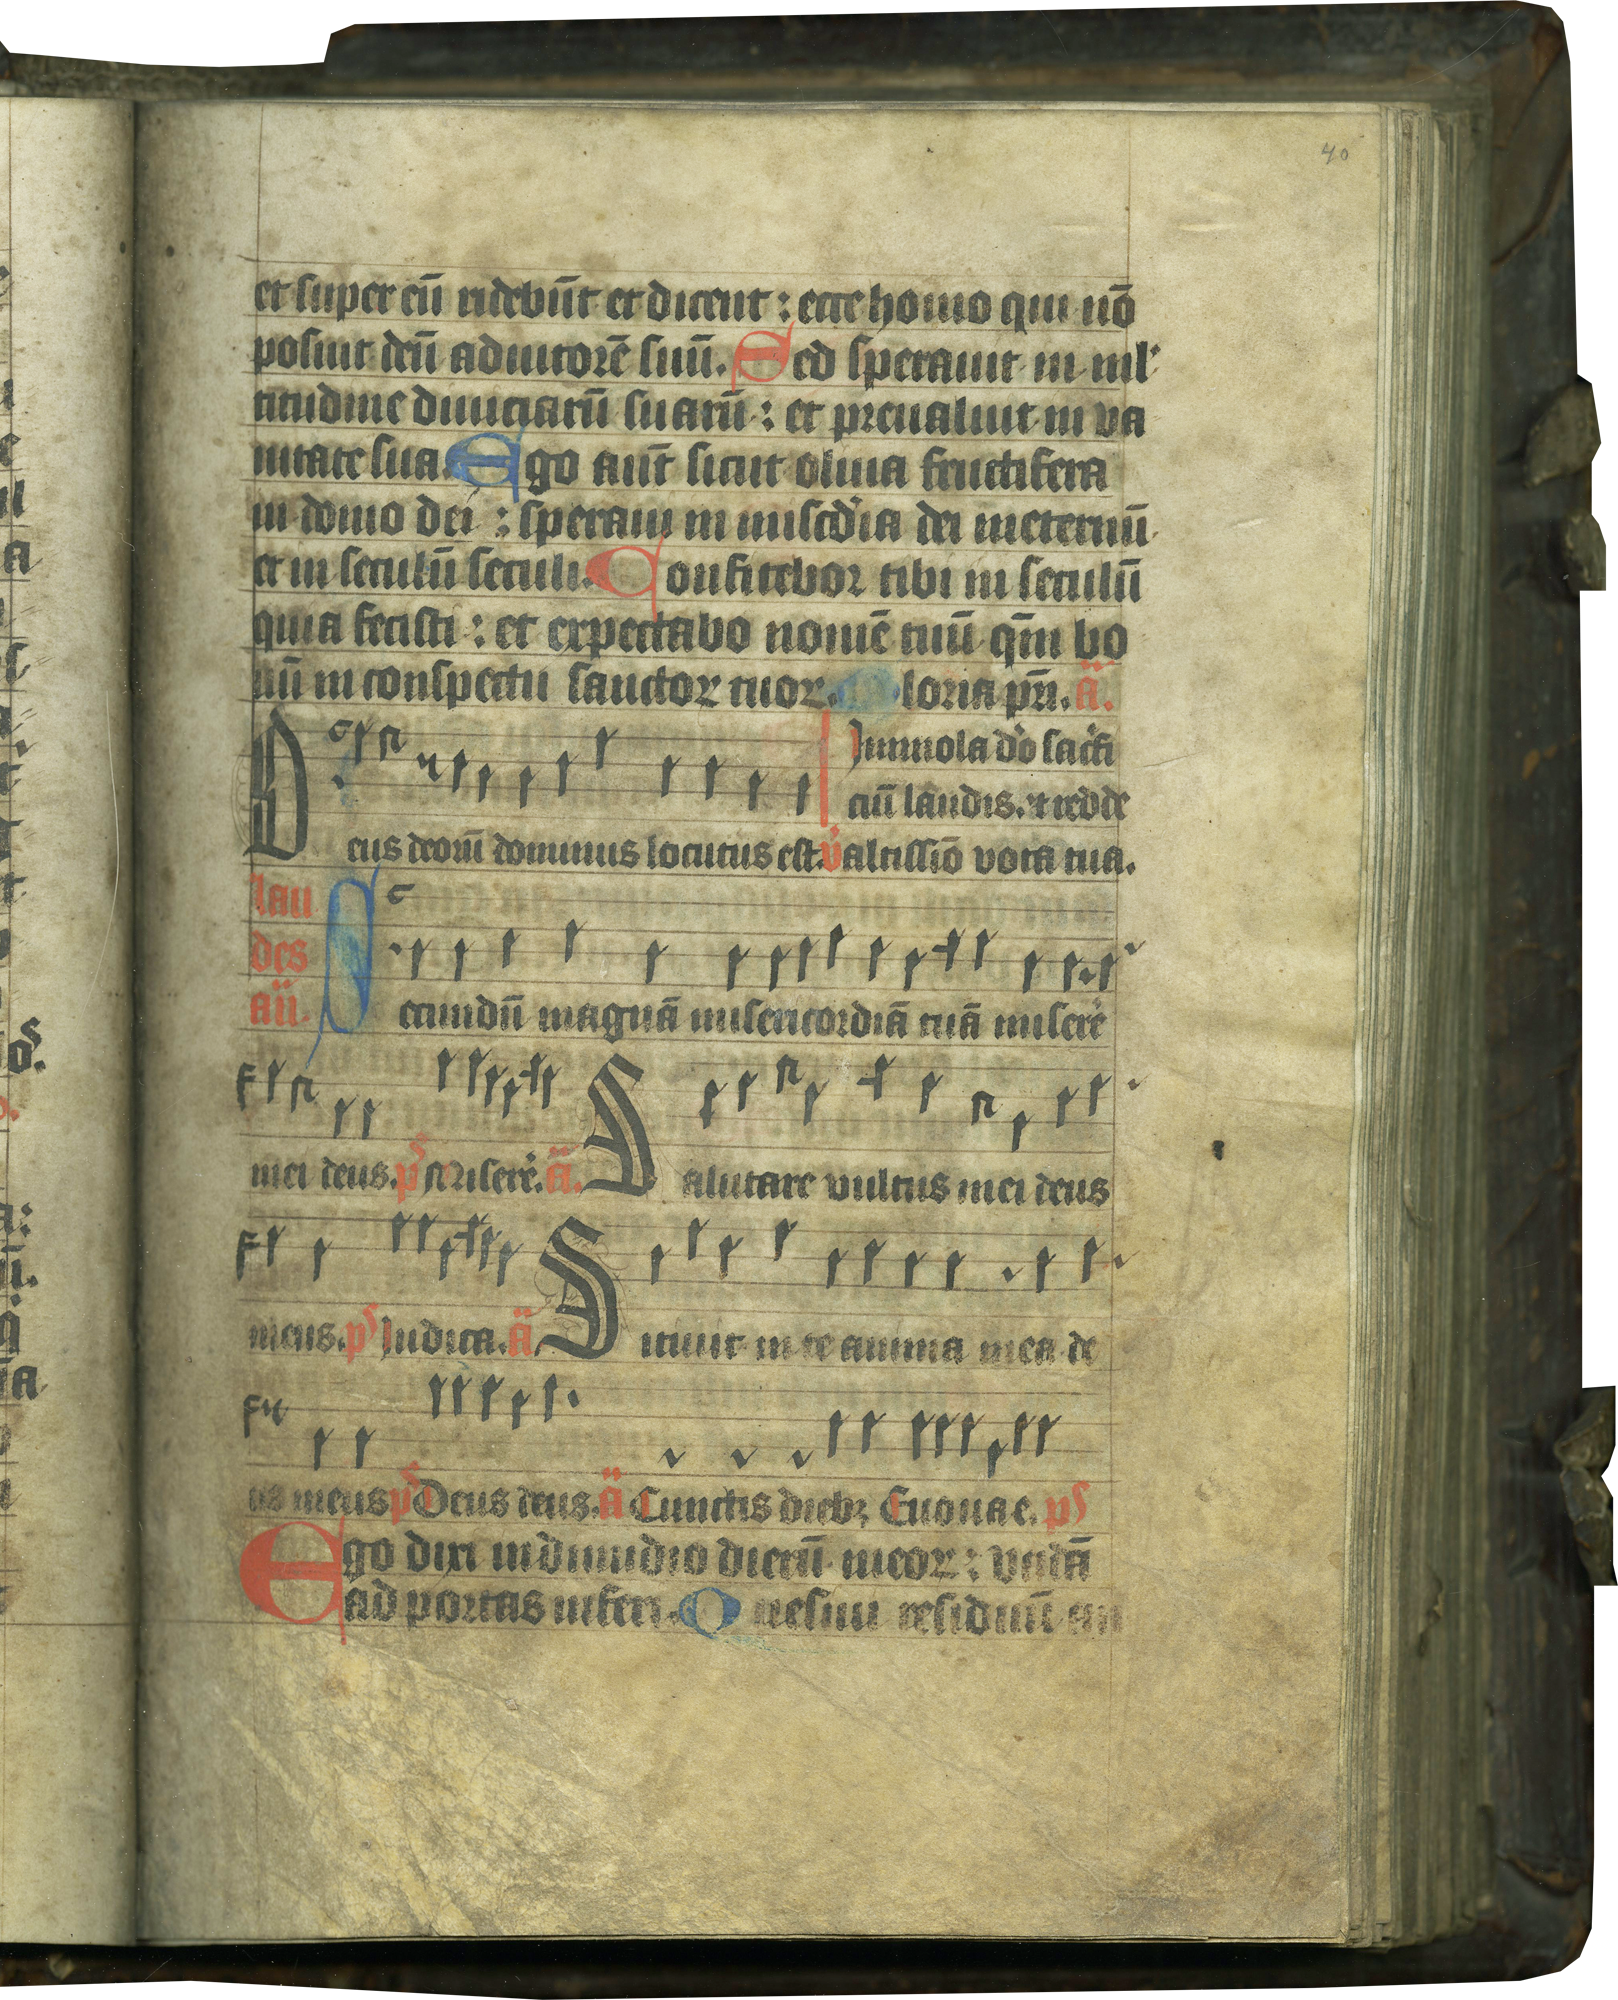 40
et super eū ridebūt et dicent : ecce homo qui nō
posuit deū adiutorē suū. Sed sperauit in ml'
titudine diuiciarū suarū : et preualuit in va
nitate sua. Ego aut̄ sicut oliua fructifera
in domo dei : speraui in misc̄dia dei ineternū
et in seculū seculi. Confitebor tibi in seculū
quia fecisti : et expectabo nomē tuū qm̄ bo
nū in conspectu sanctoꝝ tuoꝝ. Gloria pr̄i. a͞.
Immola d'o sac̓fi
ciū laudis. et redde
Deus deoꝝ dominus locutus est. v̓ altissīo vota tua.
lau
des
an̄.
Secundū magnā misericordiā tuā misere̓
mei deus. ps Misere̓. a͞. Salutare vultus mei deus
meus. ps Iudica. a͞ Sitiuit in te anima mea de
us meus ps Deus deus. a͞ Cunctis diebꝫ Euouae. ps
Ego dixi in dimidio dierū meoꝝ : vadā
ad portas inferi. Quesiui residuū an